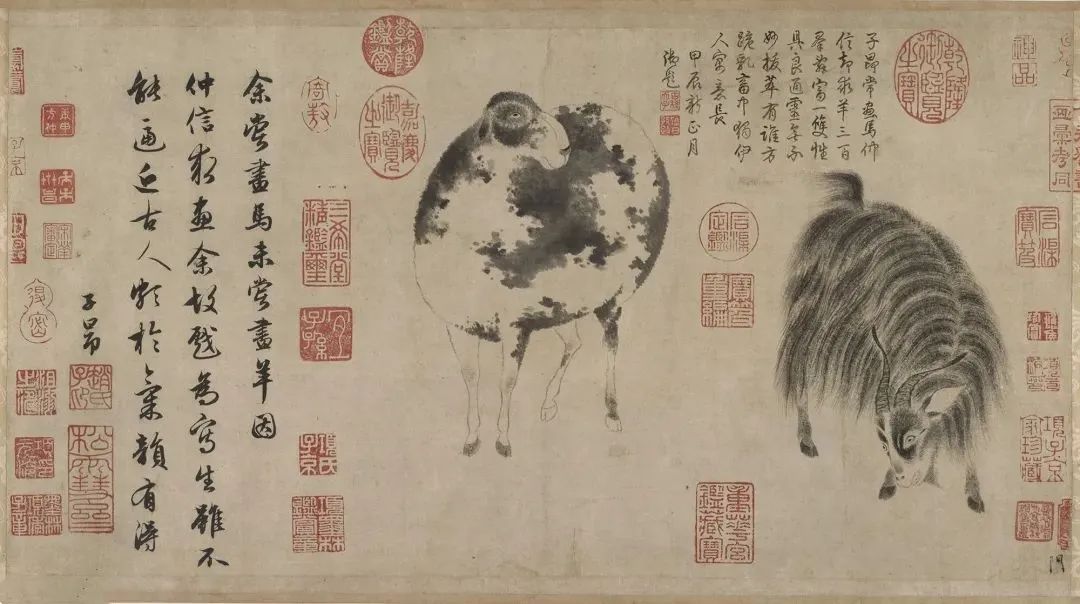 神品
石渠寶笈
項子京家珍藏
乾隆御覽之寶
子昂常畫馬仲
信却求羊三百
羣辭富一雙性
具良通靈無不
妙拔萃有誰方
跪乳畜中獨伊
人寓意長
甲辰新正月
御題
石渠定鑑
寶笈重編
重華宮鑑藏寶
乾隆鑑賞
嘉慶御覽之寶
三希堂精鑑璽
宜子孫
項氏子京
余嘗畫馬未嘗畫羊因
仲信求畫余故戲為寫生雖不
能逼近古人頗於氣韻有得
子昂
趙氏子昂
松雪齋